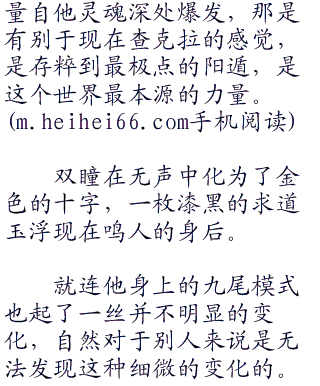 量自他灵魂深处爆发，那是
有别于现在查克拉的感觉，
是存粹到最极点的阳遁，是
这个世界最本源的力量。
(m.heihei66.com手机阅读)
双瞳在无声中化为了金
色的十字，一枚漆黑的求道
玉浮现在鸣人的身后。
就连他身上的九尾模式
也起了一丝并不明显的变
化，自然对于别人来说是无
法发现这种细微的变化的。